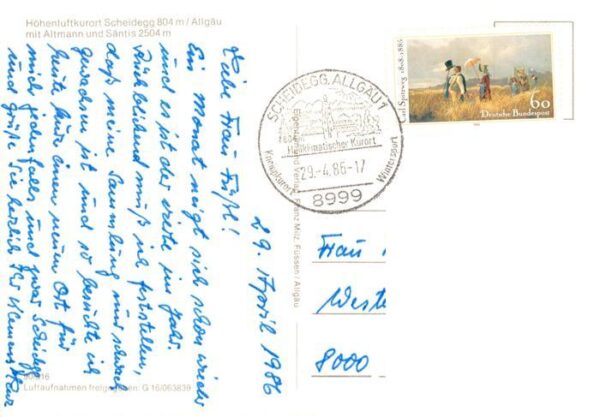 Höhenluftkurort Scheidegg 804 m / Allgäu
mit Altmann und Säntis 2504 m
29. April 1986
Liebe Frau
Ein Monat neigt sich schon wieder
und es ist der vierte im Jahr.
Rückblickend muß ich feststellen,
daß meine Sammlung nur schwach
gewachsen ist und so besuchte ich
heute einen neuen Ort für
mich jedenfalls und zwar Scheidegg
und grüße Sie herzlich Ihr
Luftaufnahmen freigegeben: G 16/063839
Eigentum und Verlag: Franz Milz, Füssen / Allgäu
SCHEIDEGG, ALLGÄU 1
Heilklimatischer Kurort
29.-4.86-17
Kneippkurort
Wintersport
8999
Carl Spitzweg 1808-1885
60
Deutsche Bundespost
Frau
Weste
8000